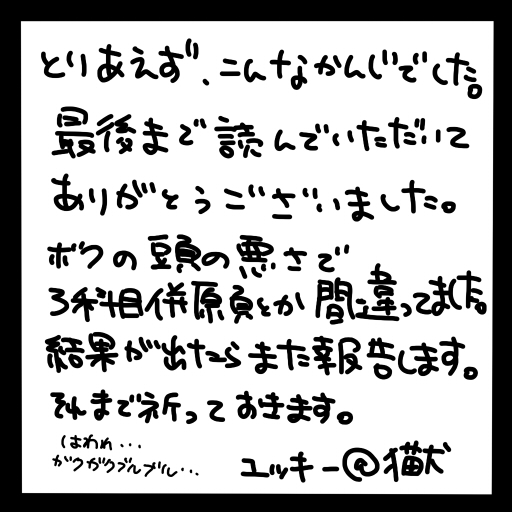 とりあえず、こんなかんじでした。
最後まで読んでいただいて
ありがとうございました。
ボクの頭の悪さで
3科目併願とか間違ってました。
結果が出たらまた報告します。
それまで祈っておきます。
(はわわ...
ガクガクブルブル...
ユッキー@猫犬